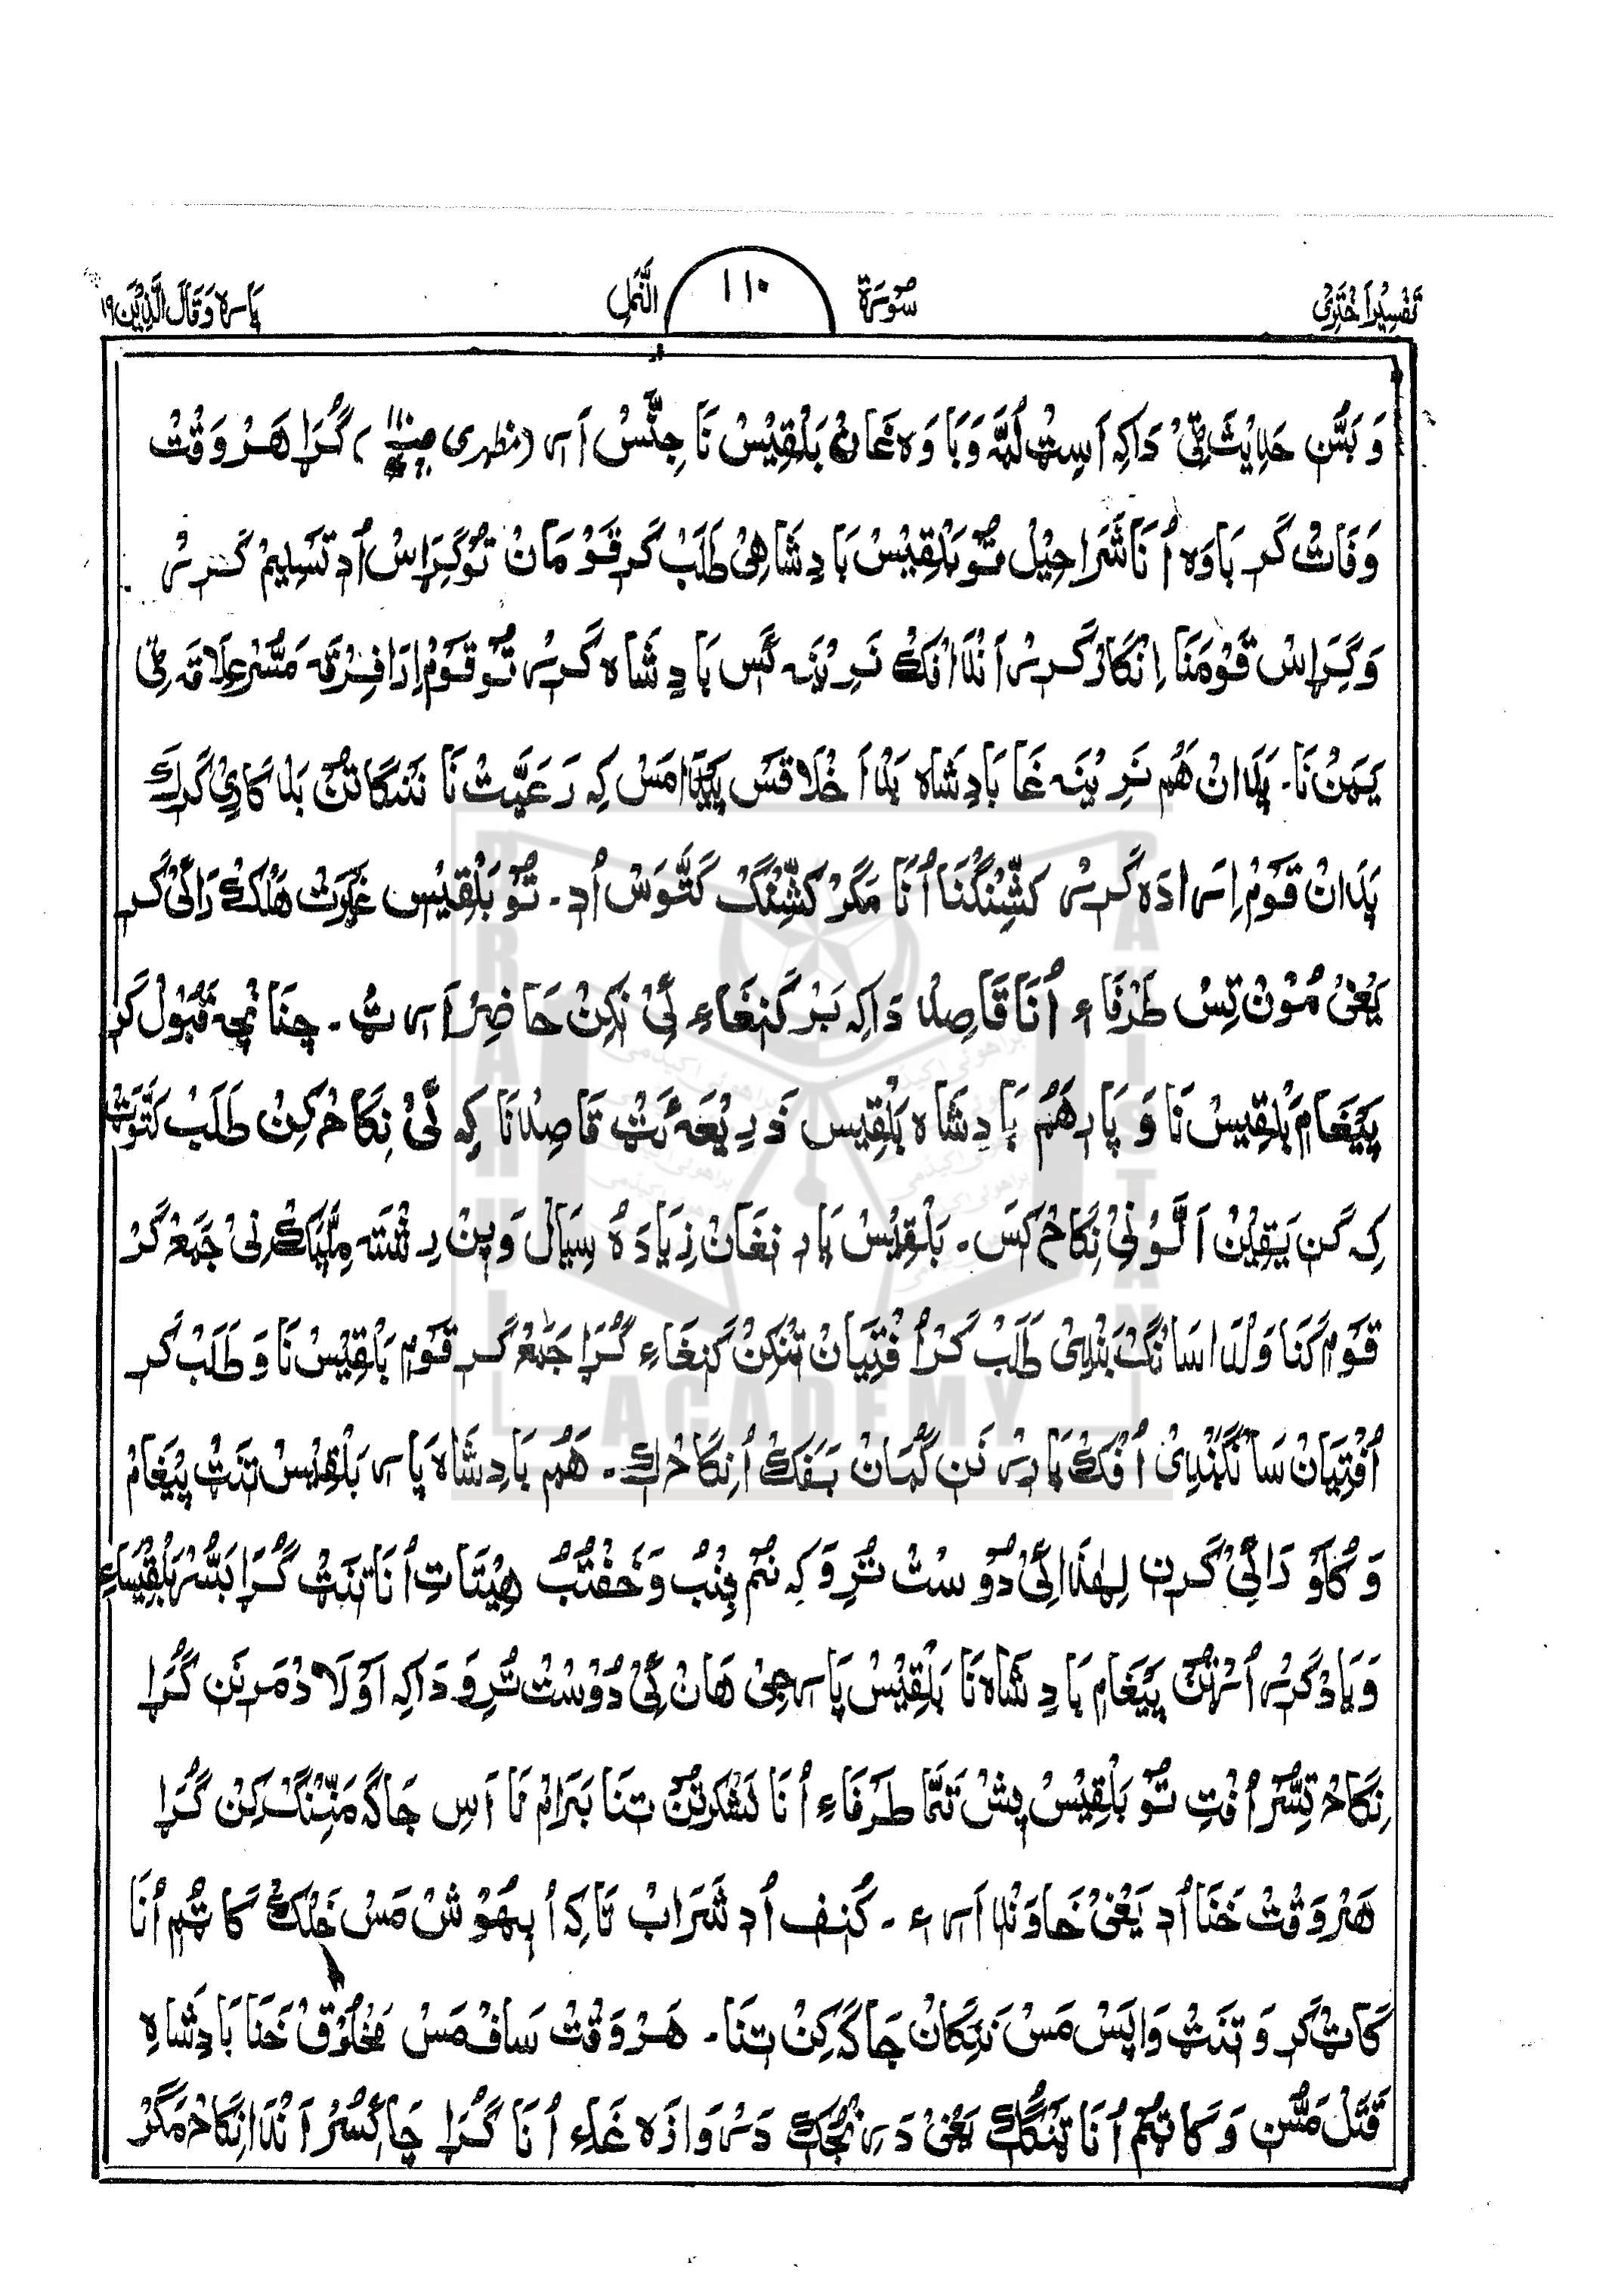 تَفْسِیْرِ اَخْتَرِیْ سُوْرَۃ ١١٠ النَّمْلِ پَارہ وَقَالَ الَّذِیْنَ ١٩
وَ بَسُّن حَدِیْثَ ٹِیْ دَاکِہ اَسِٹ لُمَّہ وَ بَاوَہ غَانْ بَلْقِیْسْ نَا جِنَّسْ اَر (مظہری ) گُڑَا هَرْ وَقْتْ
وَفَاتْ گَر بَاوَہ اُنَا شَرَاحِیْل تَوْ بَلْقِیْسْ بَادِشَاهِیْ طَلَبْ گَر قَوْمَانْ تَوْ گِرَاسْ اُدِ تَسْلِیْمْ گَرِرْ
وَ گِرَاسْ قَوْمَنَا اِنْکَارْ گَرِرْ اَنْدَا انْکْ نَرِیْنَہ گَس بَادِشَاہ گَرِرْ تَوْ قَوْمْ اِرَا فِرْقَہ مَسُّرْ عِلَاقَہ ٹِیْ
یَمَنْ نَا۔ پَدَانْ هَمْ نَرِیْنَہ غَا بَادِشَاہ بَدْ اَخْلَاقَسْ پَیْدَا مَسْ کِہ رَعِیَّتْ نَا نَنِگَاتُنْ بَدْ گَارِیْ گَرِكَ
پَدَانْ قَوْمْ اِرَادَہ گَرِرْ کَشِّنْگْنَا اُنَا مَگَرْ کَشِّنْگْ کَتَّوَسْ اُدِ۔ تَوْ بَلْقِیْس غَیْرَتْ هَلْكْ رَائِیْ گَر
یَعْنِیْ مُوْنْ تِسْ طَرْفَاء اُنَا قَاصِدْ دَاکِہ بَرْ گَنِغَاءِ ئِیْ نِکِنْ حَاضِرْ اَرِٹْ۔ چِنَانْچِہ قَبُوْل گَر
پَیْغَامْ بَلْقِیْسْ نَا وَ پَار هَمْ بَادِشَاہ بَلْقِیْس ذَرِیْعَہ ٹَ قَاصِدْنَا کِہ ئِیْ نِکَاحْ کِنْ طَلَبْ کَتَّوَٹ
کِہ گَن یَقِیْنْ اَلَّوْ نِیْ نِکَاحْ کَسَ۔ بَلْقِیْسْ پَار نغَانْ زِیَادَہ سِیَالْ وَ پِن رِشْتَہ مِلِّپَكْ نِیْ جَمَعْ گَرْ
قَوْمْ گَنَا وَلْدَا سَانْگْ بَنْدِیْ طَلَبْ گَرْ اُفْتِیَانْ تَنْکِنْ گَنِغَاءِ گُڑَا جَمَعْ گَر قَوْمْ بَلْقِیْسْ نَا وَ طَلَبْ گَر
اُفْتِیَانْ سَانْگْبَنْدِیْ اُفْكْ پَارِرْ نَن گُمَانْ بَفَكْ اُ نِکَاحْ كِ۔ هَمْ بَادِشَاہ پَار بَلْقِیْسْ تَنَٹْ پَیْغَامْ
وَ گَاوْ رَائِیْ گَرِن لِہٰذَا ئِیْ دُوْسْتْ تُرِوَ کِہ نُمْ بِنْبُ وَ خَفْتُبْ هِیْتَاتِ اُنَا تَنَٹْ گُڑَا بَسُّرْ بَلْقِیْسَاءِ
وَ یَادْ گَرِرْ اُرْتُنْ پَیْغَام بَادِشَاہ نَا بَلْقِیْسْ پَار جِیْ هَانْ ئِیْ دُوْسْتْ تُرِوَ دَاکِہ اَوْلَادْ مَرِنَن گُڑَا
نِکَاحْ تِسُّرْ اُفْتِ تَوْ بَلْقِیْسْ پِشْ تَمَّا طَرْفَاءِ اُنَا لَشْکَرْتُنْ تِنَا بَرَامْ نَا اَسِ جَاگَہ مَنِّنْگْ کِنْ گُڑَا
هَرْ وَقْتْ خَنَا اُدِ یَعْنِیْ خَاوَنْد اَرِ ء۔ کُنِف اُدِ شَرَابْ تَاکِہ اُ بِہُوْشْ مَسْ خَلْكْ گَاٹُمْ اُنَا
گَاٹْ گَر وَ تِنَٹْ وَاپَسْ مَسْ نَنِگَانْ جَاگَہ کِنْ تِنَا۔ هَرْ وَقْتْ سَافْ مَسْ مَخْلُوْقْ خَنَا بَادِشَاہِ
قَتْل مَسُّن وَ گَاٹُمْ اُنَا ٹَنْگُكْ یَعْنِیْ دَرِنْجُكْ دَرْوَاذَہ غَاءِ اُنَا گُڑَا چَائِسُرْ اَنْدَا نِکَاحْ مَگَرْ